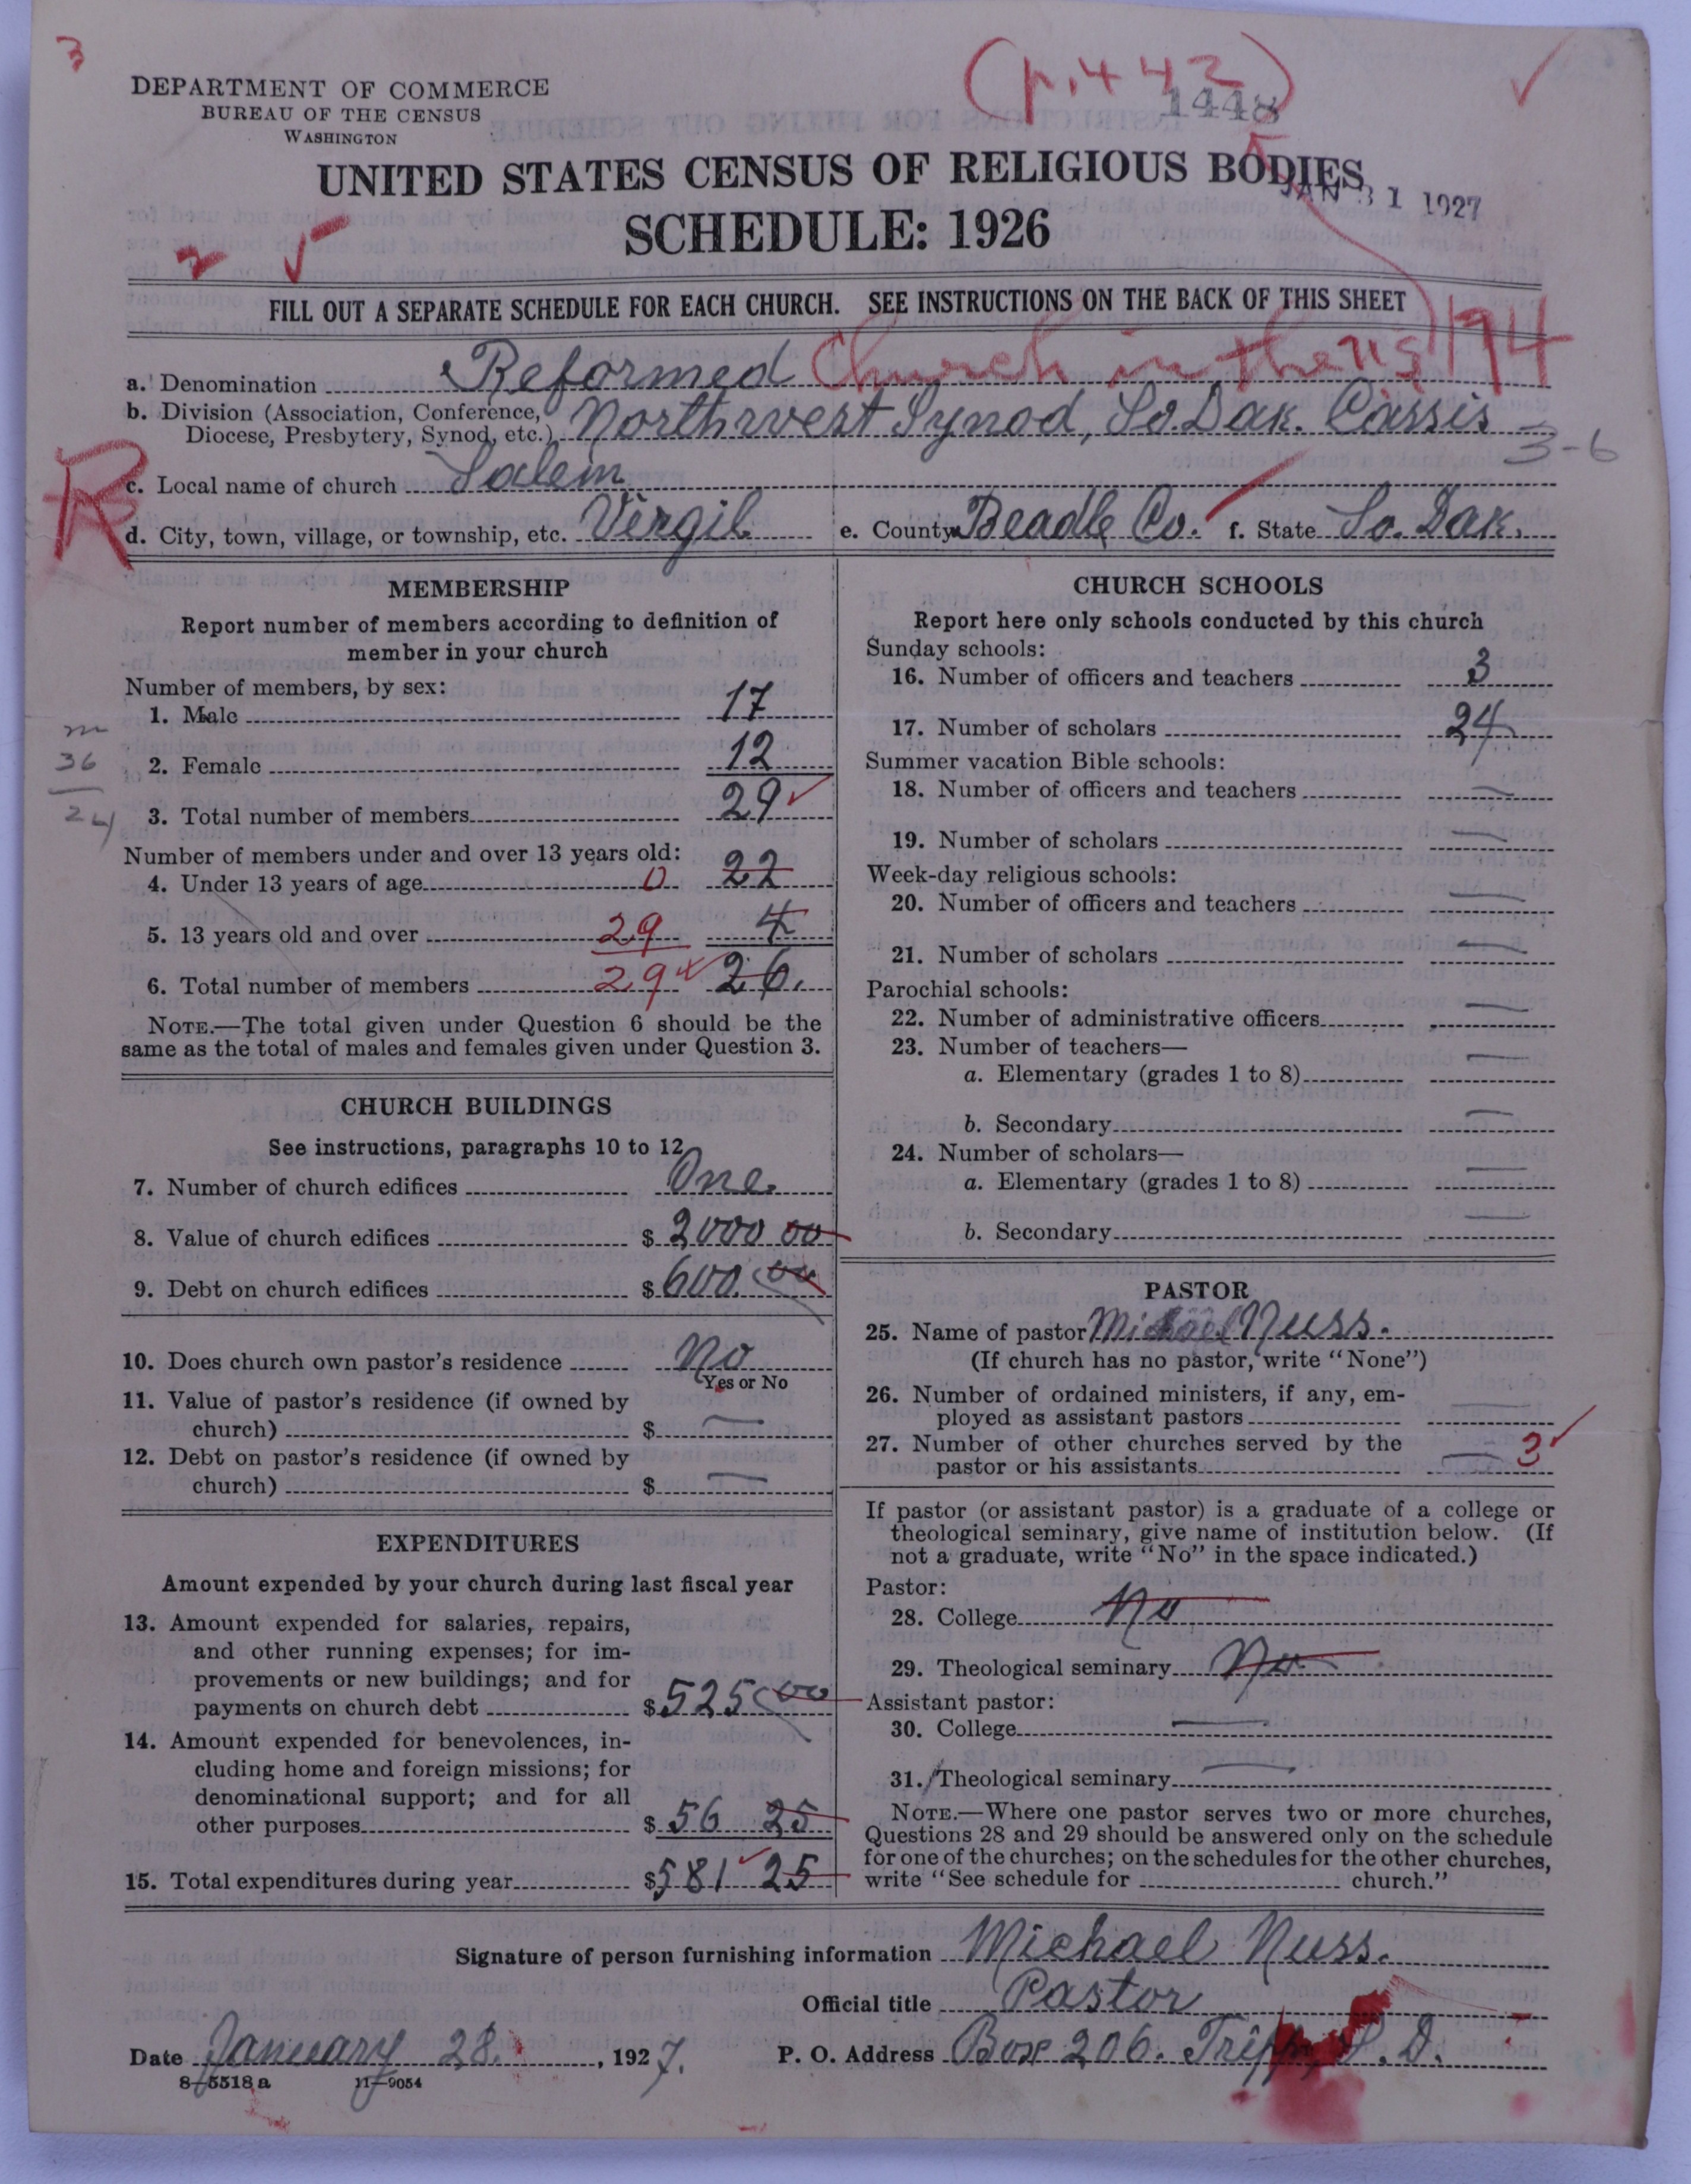 3
(p. 442)
1448
DEPARTMENT OF COMMERCE
BUREAU OF THE CENSUS
WASHINGTON
UNITED STATES CENSUS OF RELIGIOUS BODIES
JAN 31 1927
SCHEDULE: 1926
2
FILL OUT A SEPARATE SCHEDULE FOR EACH CHURCH. SEE INSTRUCTIONS ON THE BACK OF THIS SHEET
194
a. Denomination Reformed Church in the US
b. Division (Association, Conference, Diocese, Presbytery, Synod, etc.) Northwest Synod, So. Dak. Cassis
3-6
R
c. Local name of church Salem
d. City, town, village, or township, etc. Virgil e. County Beadle Co. f. State So. Dak.
MEMBERSHIP
Report number of members according to definition of
member in your church
Number of members, by sex:
1. Male 17
2. Female 12
m
36
24
3. Total number of members 29
Number of members under and over 13 years old:
4. Under 13 years of age 0 22
5. 13 years old and over 29 4
6. Total number of members 29 26.
NOTE.—The total given under Question 6 should be the
same as the total of males and females given under Question 3.
CHURCH BUILDINGS
See instructions, paragraphs 10 to 12
7. Number of church edifices One.
8. Value of church edifices $ 2000 00
9. Debt on church edifices $ 600. 00
10. Does church own pastor's residence No
Yes or No
11. Value of pastor's residence (if owned by
church) $ —
12. Debt on pastor's residence (if owned by
church) $ —
EXPENDITURES
Amount expended by your church during last fiscal year
13. Amount expended for salaries, repairs,
and other running expenses; for im-
provements or new buildings; and for
payments on church debt $ 525 00
14. Amount expended for benevolences, in-
cluding home and foreign missions; for
denominational support; and for all
other purposes $ 56 25
15. Total expenditures during year $ 581 25
CHURCH SCHOOLS
Report here only schools conducted by this church
Sunday schools:
16. Number of officers and teachers 3
17. Number of scholars 24
Summer vacation Bible schools:
18. Number of officers and teachers —
19. Number of scholars —
Week-day religious schools:
20. Number of officers and teachers —
21. Number of scholars —
Parochial schools:
22. Number of administrative officers —
23. Number of teachers—
a. Elementary (grades 1 to 8) —
b. Secondary —
24. Number of scholars—
a. Elementary (grades 1 to 8) —
b. Secondary —
PASTOR
25. Name of pastor Michael Nuss.
(If church has no pastor, write "None")
26. Number of ordained ministers, if any, em-
ployed as assistant pastors —
27. Number of other churches served by the
pastor or his assistants — 3
If pastor (or assistant pastor) is a graduate of a college or
theological seminary, give name of institution below. (If
not a graduate, write "No" in the space indicated.)
Pastor:
28. College No
29. Theological seminary No
Assistant pastor:
30. College —
31. Theological seminary —
NOTE.—Where one pastor serves two or more churches,
Questions 28 and 29 should be answered only on the schedule
for one of the churches; on the schedules for the other churches,
write "See schedule for church."
Signature of person furnishing information Michael Nuss.
Official title Pastor
Date January 28. , 1927. P. O. Address Box 206. Tripp, S. D.
8—5518 a 11—9054